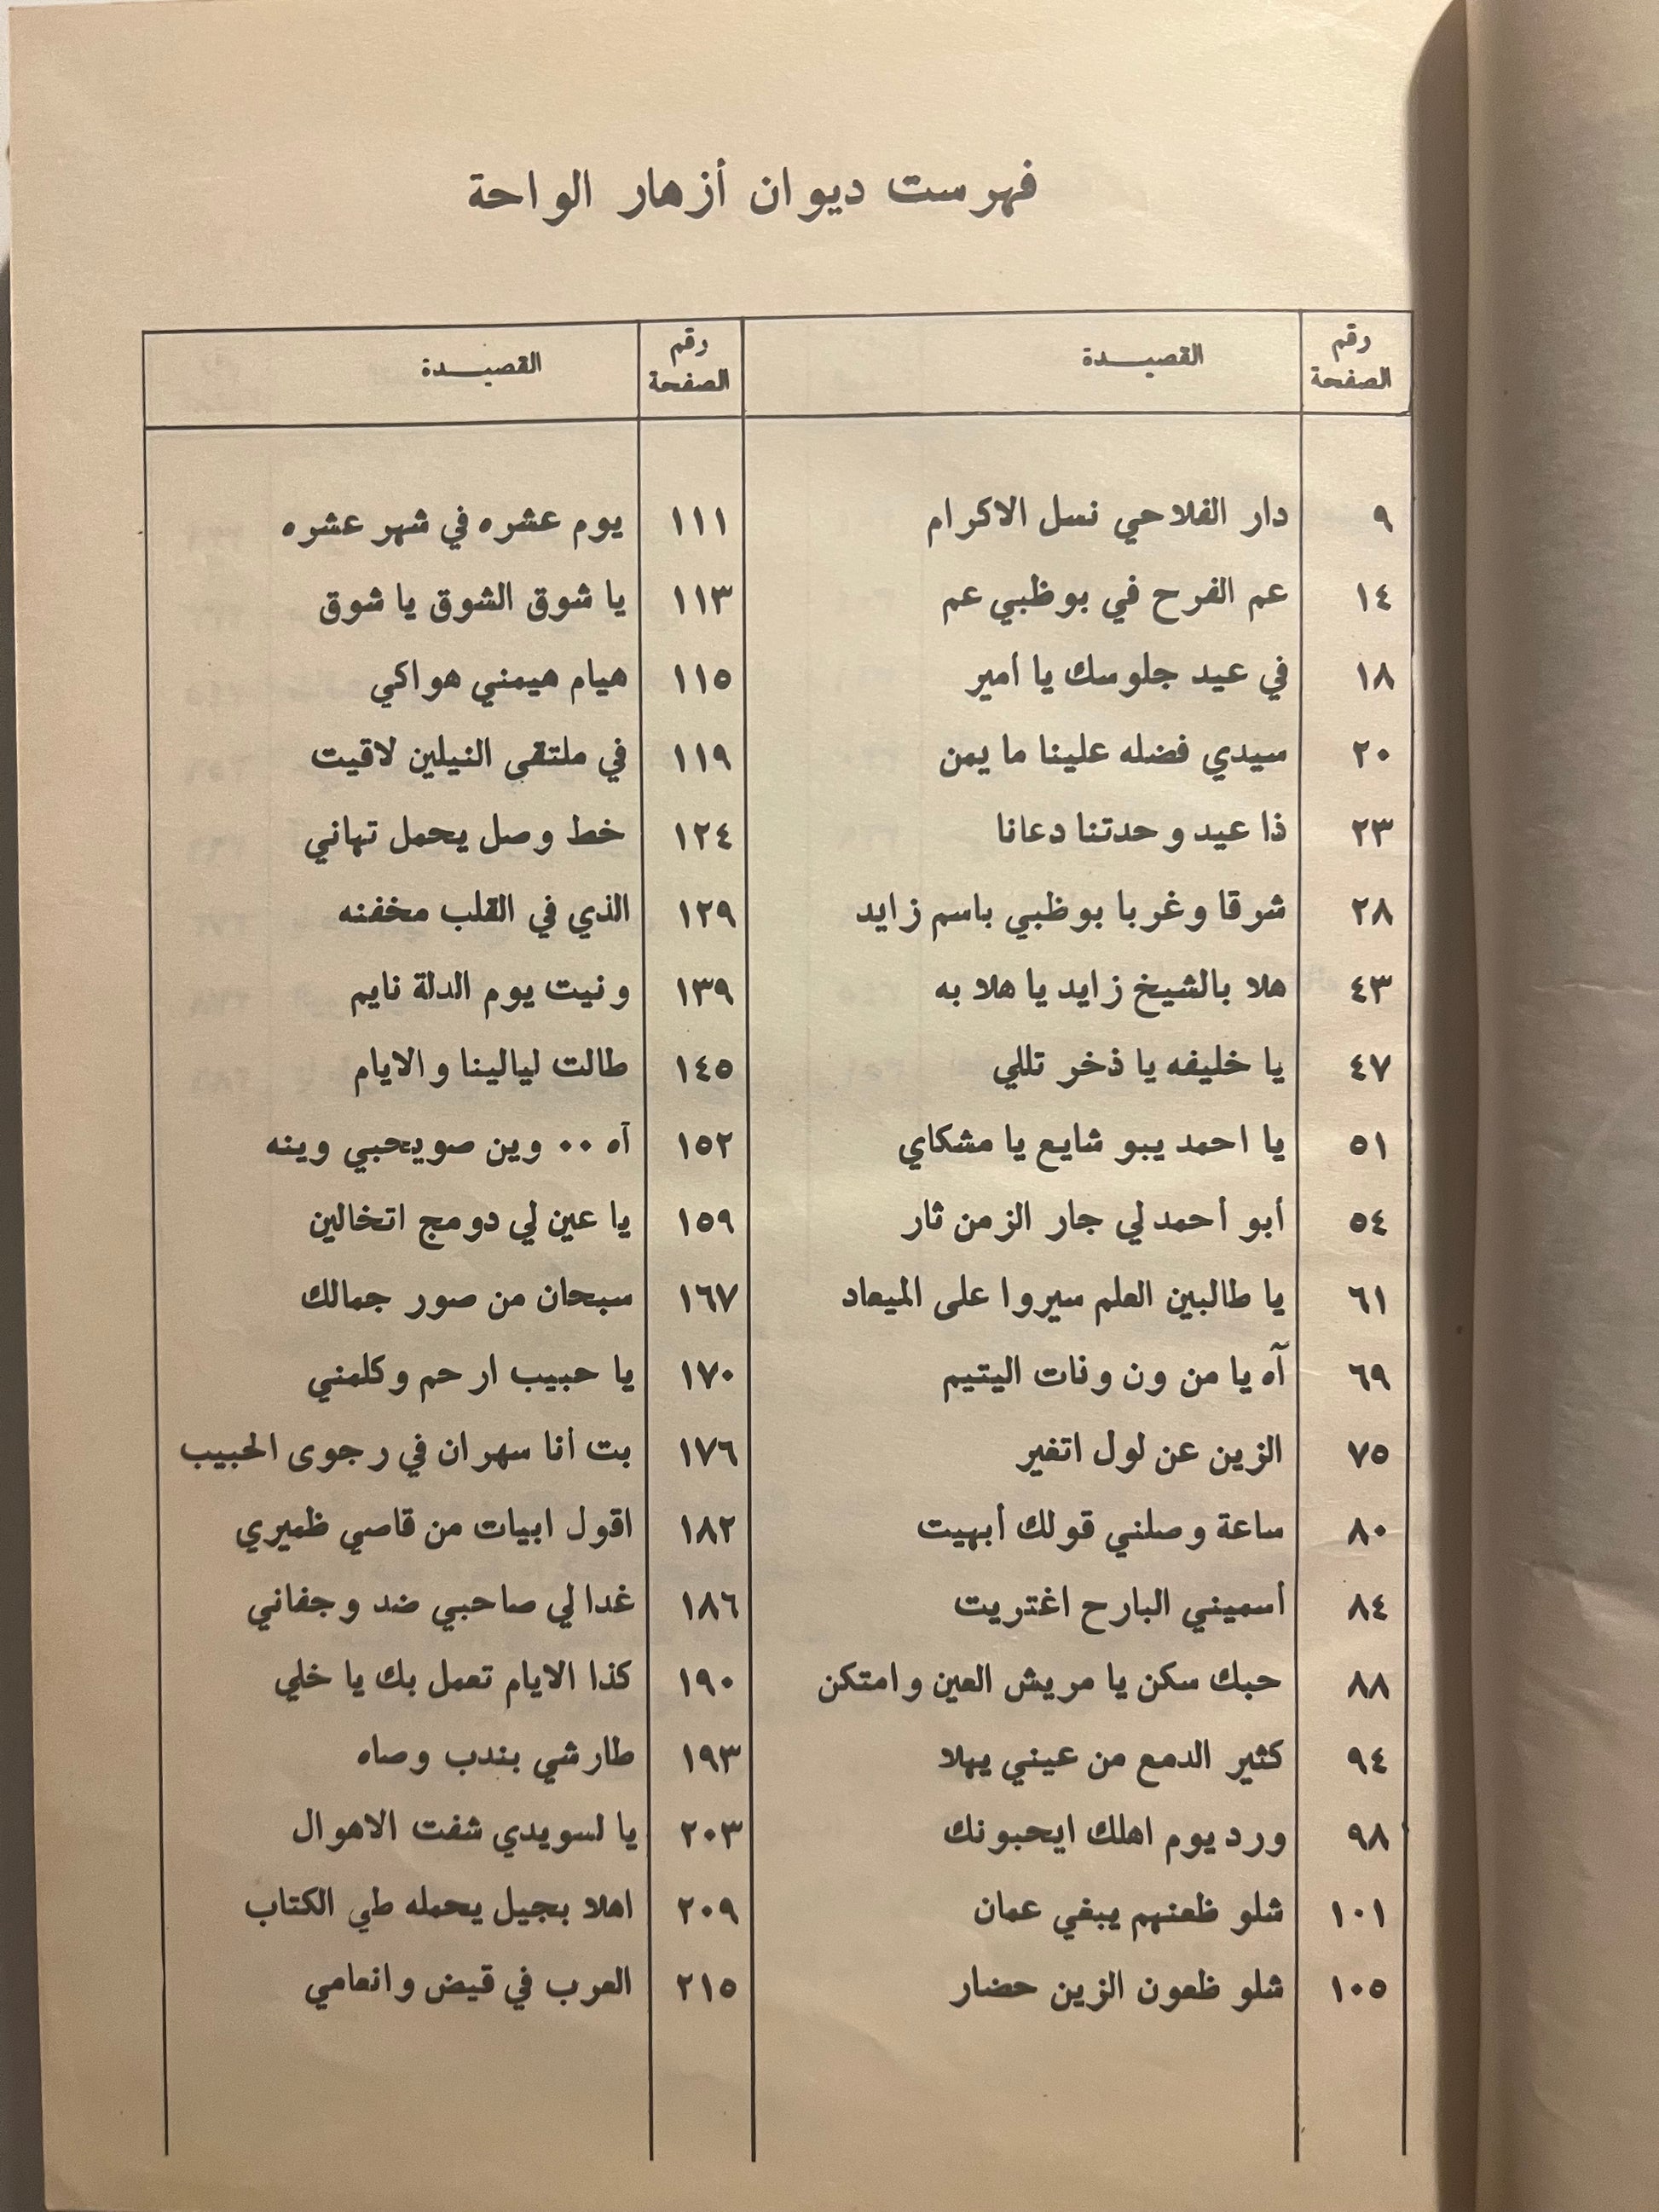 فهرست ديوان أزهار الواحة
رقم الصفحة القصيدة رقم الصفحة القصيدة
٩ دار الفلاحي نسل الاكرام ١١١ يوم عشره في شهر عشره
١٤ عم الفرح في بوظبي عم ١١٣ يا شوق الشوق يا شوق
١٨ في عيد جلوسك يا أمير ١١٥ هيام هيمني هواكي
٢٠ سيدي فضله علينا ما يمن ١١٩ في ملتقى النيلين لاقيت
٢٣ ذا عيد وحدتنا دعانا ١٢٤ خط وصل يحمل تهاني
٢٨ شرقا وغربا بوظبي باسم زايد ١٢٩ الذي في القلب مخفنه
٤٣ هلا بالشيخ زايد يا هلا به ١٣٩ ونيت يوم الدلة نايم
٤٧ يا خليفه يا ذخر تللي ١٤٥ طالت ليالينا والايام
٥١ يا احمد يبو شايع يا مشكاي ١٥٢ آه ٠٠ وين صويحبي وينه
٥٤ أبو أحمد لي جار الزمن ثار ١٥٩ يا عين لي دومج اتخالين
٦١ يا طالبين العلم سيروا على الميعاد ١٦٧ سبحان من صور جمالك
٦٩ آه يا من ون ونات اليتيم ١٧٠ يا حبيب ارحم وكلمني
٧٥ الزين عن لول اتغير ١٧٦ بت أنا سهران في رجوى الحبيب
٨٠ ساعة وصلني قولك أبهيت ١٨٢ اقول ابيات من قاصي ظميري
٨٤ أسميني البارح اغتريت ١٨٦ غدا لي صاحبي ضد وجفاني
٨٨ حبك سكن يا مريش العين وامتكن ١٩٠ كذا الايام تعمل بك يا خلي
٩٤ كثير الدمع من عيني يهلا ١٩٣ طارشي بندب وصاه
٩٨ ورد يوم اهلك ايحبونك ٢٠٣ يا لسويدي شفت الاهوال
١٠١ شلو ظعنهم يبغي عمان ٢٠٩ اهلا بجيل يحمله طي الكتاب
١٠٥ شلو ظعون الزين حضار ٢١٥ العرب في قيض وانعامي